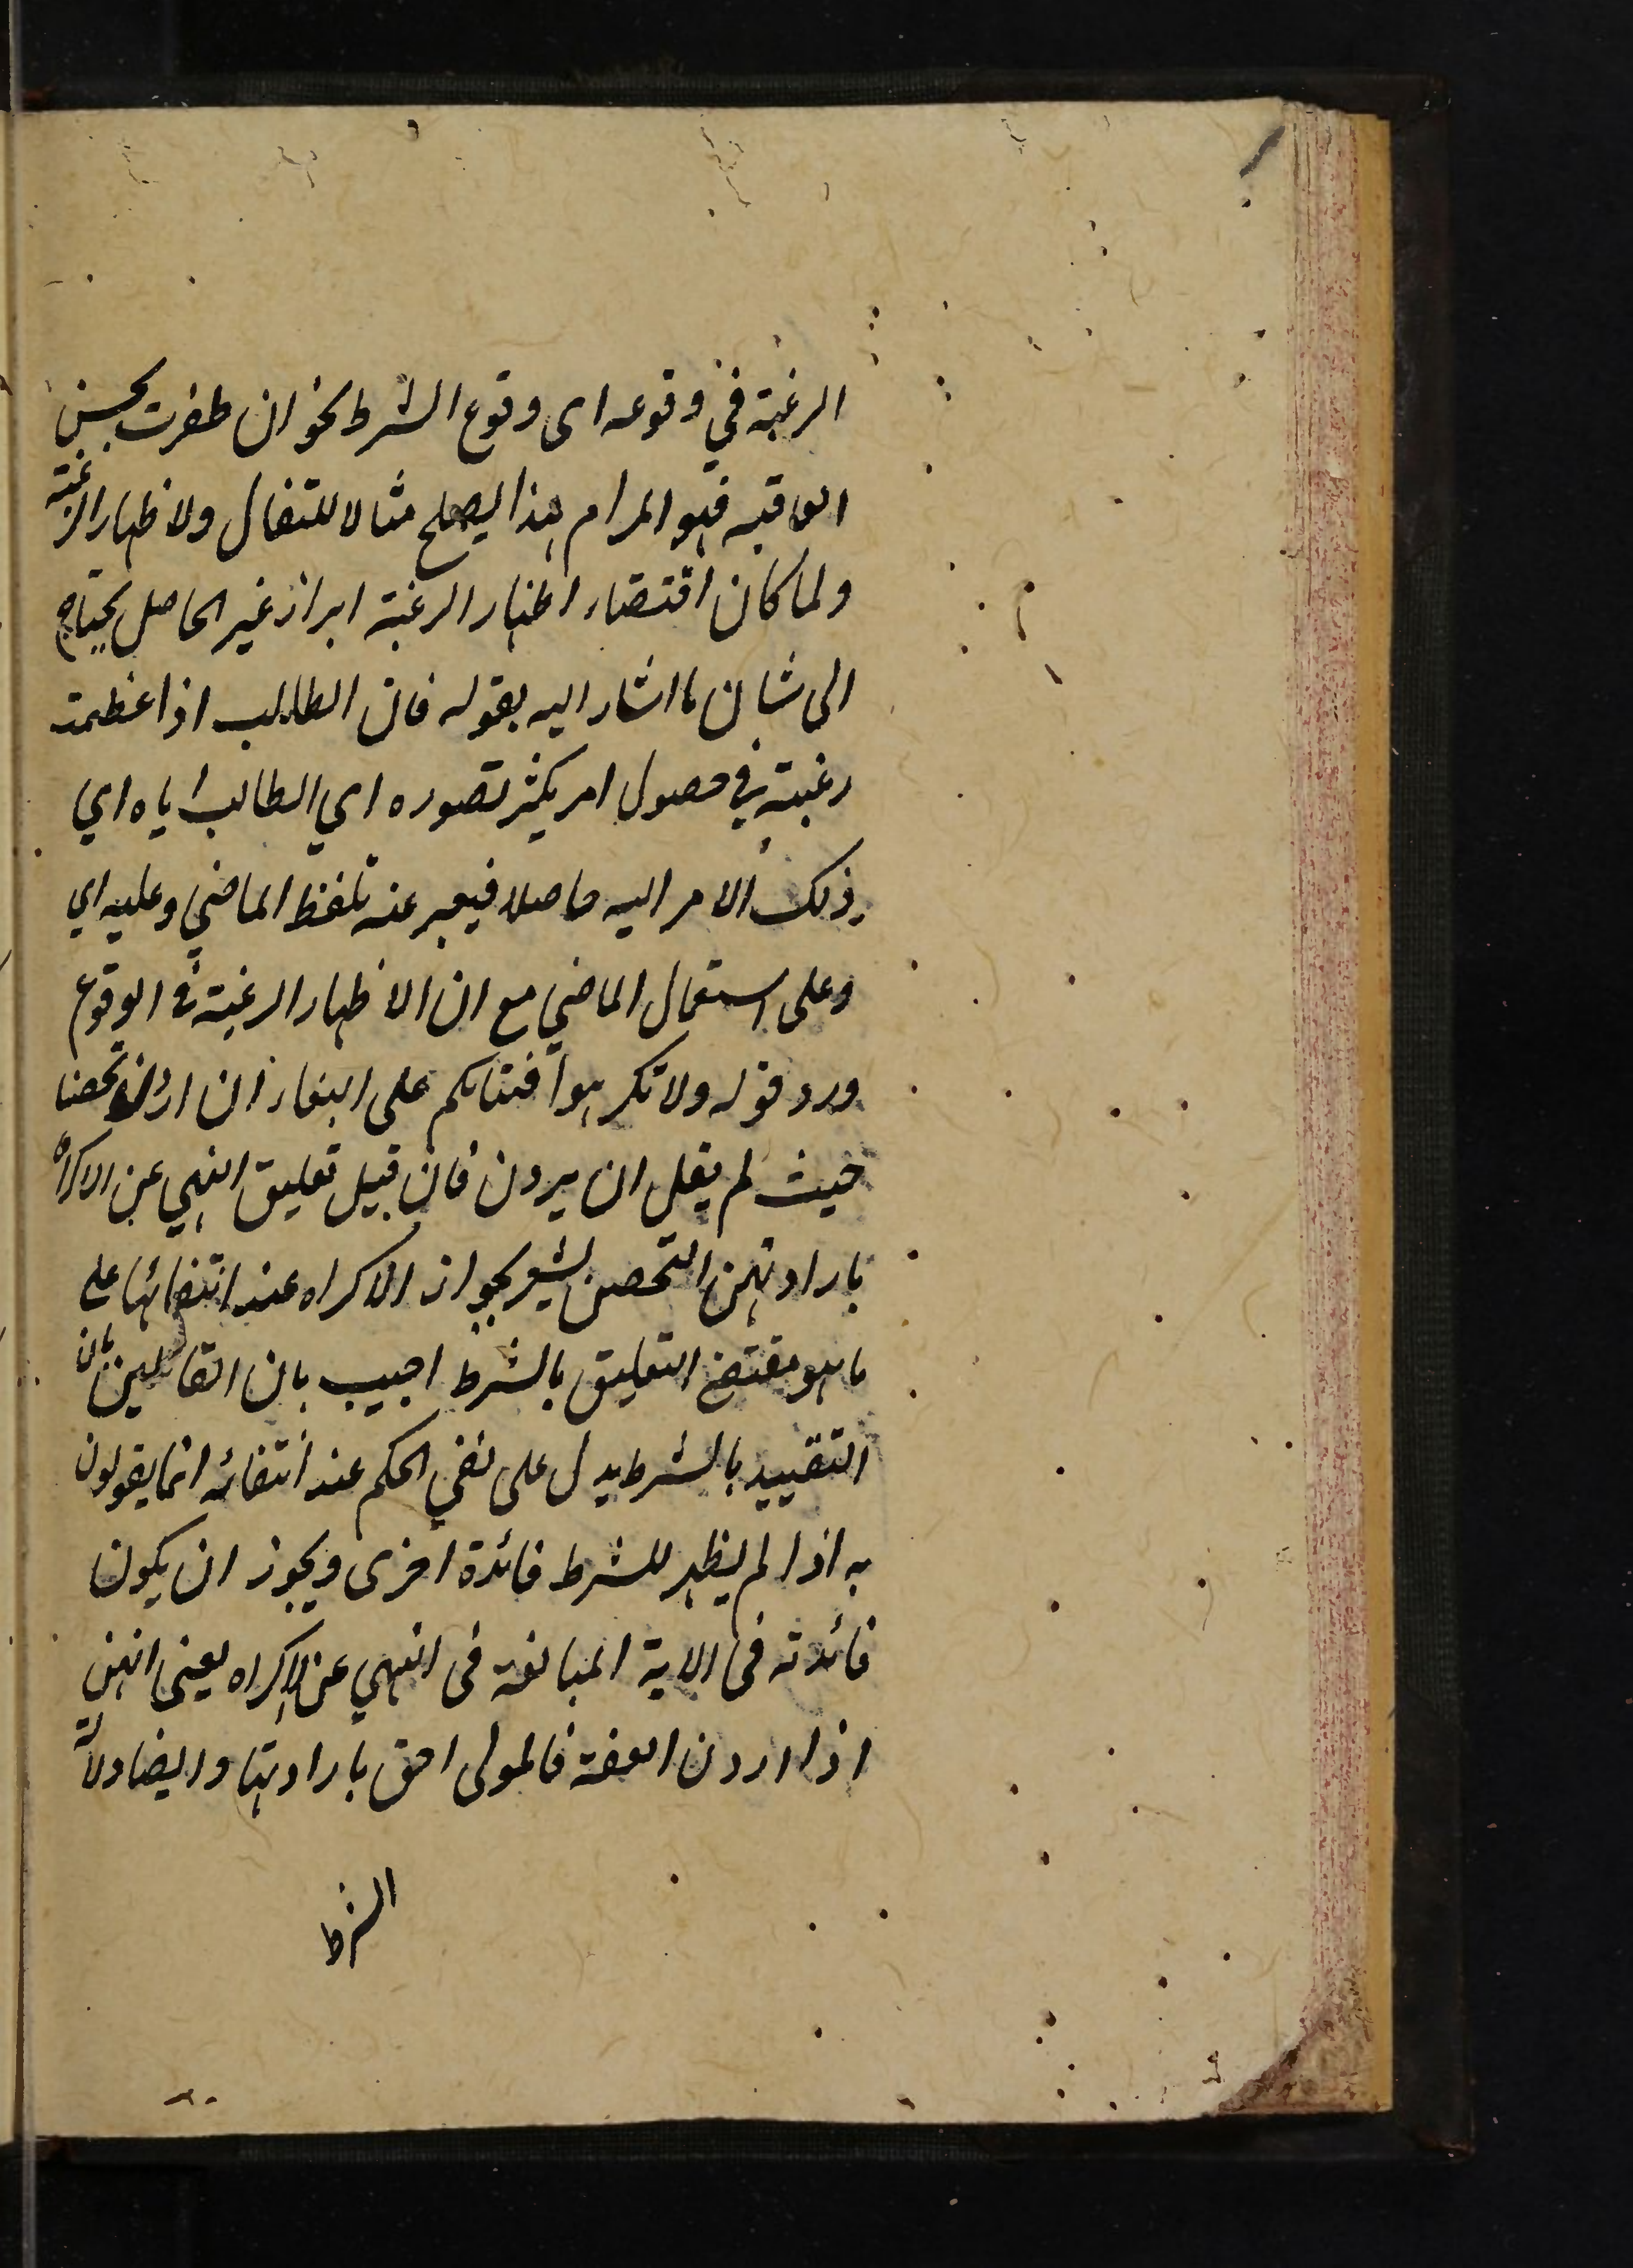 الرغبة في وقوعه اى وقوع الشرط نحو ان ظفرت بحسن
العاقبة فهو المرام هذا يصلح مثالا للتفال ولاظهار الرغبة
ولما كان اقتضاء اظهار الرغبة ابراز غير الحاصل يحتاج
الى شان ما اشار اليه بقوله فان الطالب اذا عظمت
رغبته في حصول امر يكثر تصوره اي الطالب اياه اي
ذلك الامر اليه حاصلا فيعبر عنه بلفظ الماضي وعليه اي
وعلى استعمال الماضي مع ان الاظهار الرغبة في الوقوع
ورد قوله ولا تكرهوا فتياتكم على البغاء ان اردن تحصنا
حيث لم يقل ان يردن فان قيل تعليق النهي عن الاكراه
بارادتهن التحصن يشعر بجواز الاكراه عند انتفائها على
ما هو مقتضى التعليق بالشرط اجيب بان القائلين بان
التقييد بالشرط يدل على نفي الحكم عند انتفائه انما يقولون
به اذا لم يظهر للشرط فائدة اخرى ويجوز ان يكون
فائدته فى الاية المبالغة فى النهي عن الاكراه يعنى انهن
اذا اردن العفة فالمولى احق بارادتها وايضا دلالة
الشرط